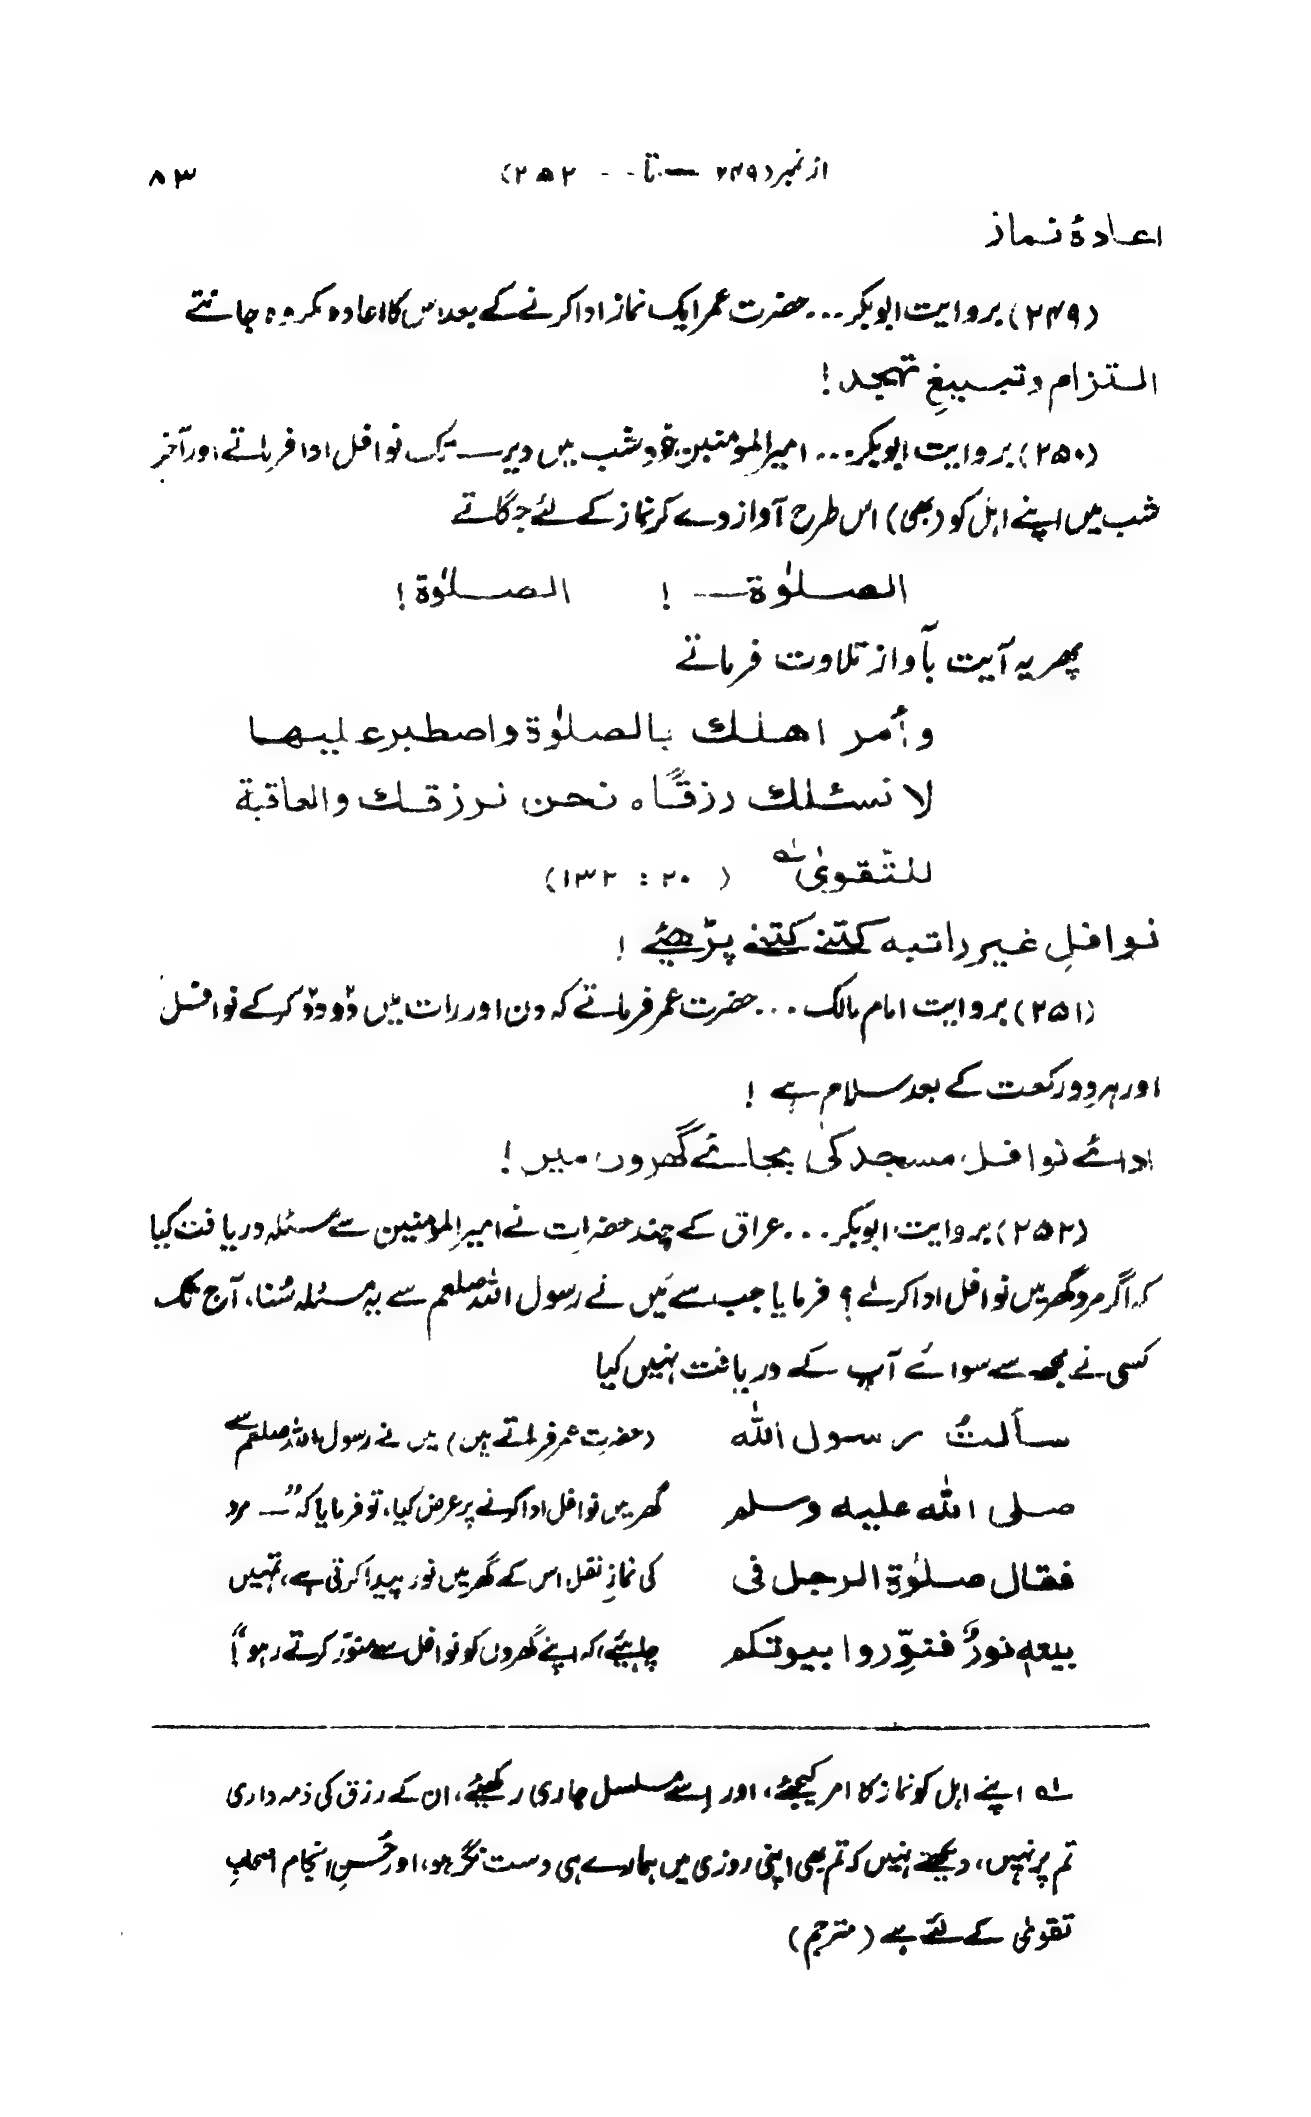 از نمبر (۲۴۹ — تا - - ۲۵۲) ۸۳
اعادۂ نماز
(۲۴۹) بروایت ابوبکر... حضرت عمر ایک نماز ادا کرنے کے بعد اس کا اعادہ مکروہ جانتے
التزام و تبلیغِ تہجد!
(۲۵۰) بروایت ابوبکر... امیرالمومنین خود شب میں دیر تک نوافل ادا فرماتے اور آخر
شب میں اپنے اہل کو (بھی) اس طرح آواز دے کر نماز کے لئے جگاتے
الصلوٰۃ — ! الصلوٰۃ!
پھر یہ آیت بآواز تلاوت فرماتے
وأمر اھلک بالصلوٰۃ واصطبر علیہا
لا نسئلک رزقاً ہ نحن نرزقک والعاقبۃ
للتّقویٰ لہ (۲۰ : ۱۳۲)
نوافلِ غیر راتبہ کتنے کتنے پڑھئے !
(۲۵۱) بروایت امام مالک... حضرت عمر فرماتے کہ دن اور رات میں دو دو کر کے نوافل
اور ہر دو رکعت کے بعد سلام ہے !
ادائے نوافل مسجد کی بجائے گھروں میں !
(۲۵۲) بروایت ابوبکر... عراق کے چند حضرات نے امیرالمومنین سے مسئلہ دریافت کیا
کہ اگر مرد گھر میں نوافل ادا کرلے؟ فرمایا جب سے مَیں نے رسول اللہ صلعم سے یہ مسئلہ سُنا، آج تک
کسی نے مجھ سے سوائے آپ کے دریافت نہیں کیا
سألتُ رسول اللہ (حضرت عمر فرماتے ہیں) میں نے رسول اللہ صلعم سے
صلی اللہ علیہ وسلم گھر میں نوافل ادا کرنے پر عرض کیا، تو فرمایا کہ ”— مرد
فقال صلوٰۃ الرجل فی کی نمازِ نفل اس کے گھر میں نور پیدا کرتی ہے، تمہیں
بیتہ نورٌ فنوِّروا بیوتکم چاہیئے، کہ اپنے گھروں کو نوافل سے منوّر کرتے رہو“!
لہ اپنے اہل کو نماز کا امر کیجئے، اور اِسے مسلسل جاری رکھیئے، ان کے رزق کی ذمہ داری
تم پر نہیں، دیکھتے نہیں کہ تم بھی اپنی روزی میں ہمارے ہی دست نگر ہو، اور حُسنِ انجام اصحابِ
تقویٰ کے لئے ہے (مترجم)